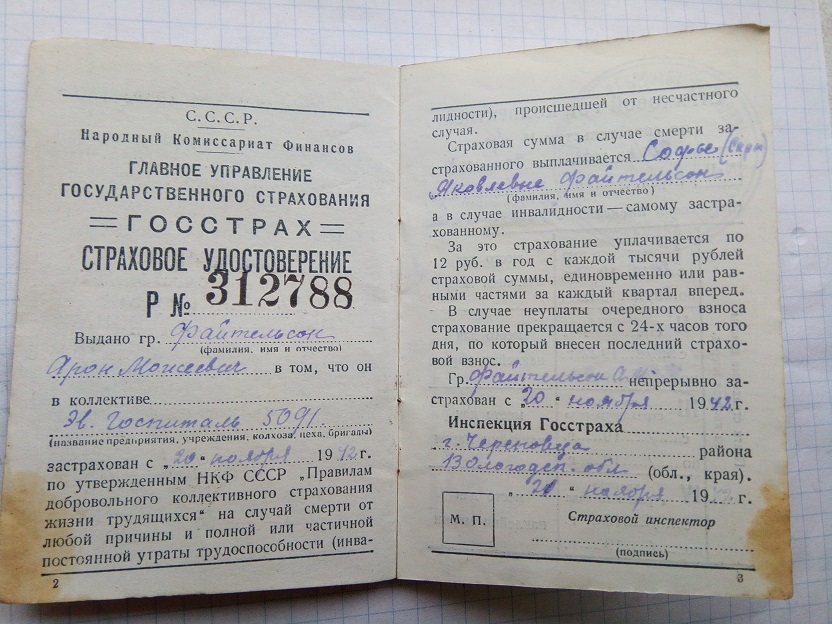 С.С.С.Р.
Народный Комиссариат Финансов
ГЛАВНОЕ УПРАВЛЕНИЕ
ГОСУДАРСТВЕННОГО СТРАХОВАНИЯ
ГОССТРАХ
СТРАХОВОЕ УДОСТОВЕРЕНИЕ
Р № 312788
Выдано гр. Файтельсон
(фамилия, имя и отчество)
Арон Моисеевич в том, что он
в коллективе
Эв. Госпиталь 5091.
(название предприятия, учреждения, колхоза, цеха, бригады)
застрахован с „20“ ноября 1942г.
по утвержденным НКФ СССР „Правилам
добровольного коллективного страхования
жизни трудящихся“ на случай смерти от
любой причины и полной или частичной
постоянной утраты трудоспособности (инва-
2
лидности), происшедшей от несчастного
случая.
Страховая сумма в случае смерти за-
страхованного выплачивается Софье
Яковлевне Файтельсон
(фамилия, имя и отчество)
а в случае инвалидности — самому застра-
хованному.
За это страхование уплачивается по
12 руб. в год с каждой тысячи рублей
страховой суммы, единовременно или рав-
ными частями за каждый квартал вперед.
В случае неуплаты очередного взноса
страхование прекращается с 24-х часов того
дня, по который внесен последний страхо-
вой взнос.
Гр. Файтельсон А.М. непрерывно за-
страхован с „20“ ноября 1942г.
Инспекция Госстраха
г. Череповца района
Вологодск. обл (обл., края).
„20“ ноября 19 г.
М. П.
Страховой инспектор
(подпись)
3